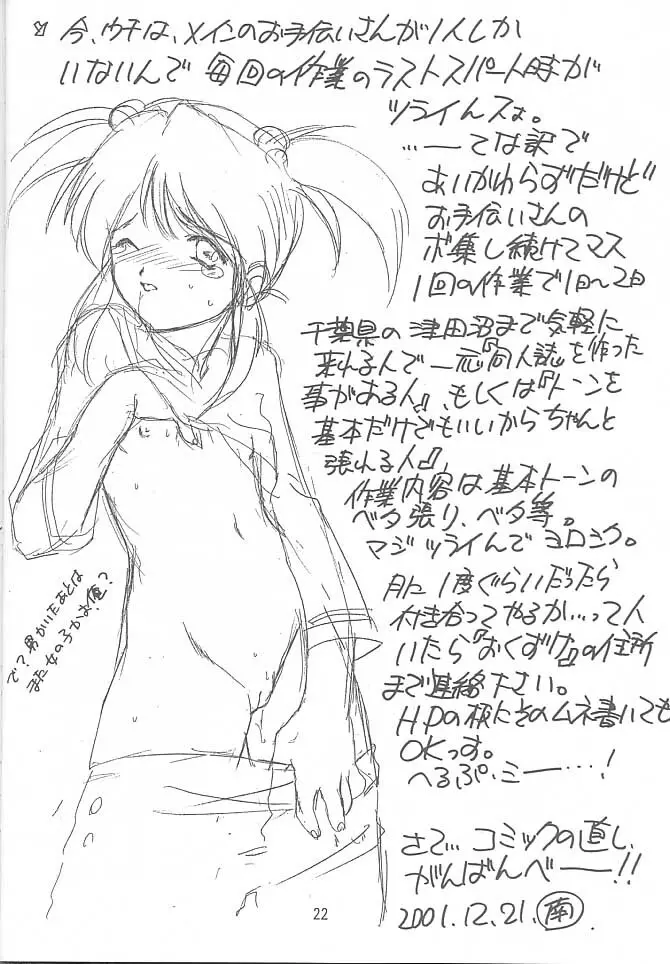 今、ウチは、メインのお手伝いさんが1人しか
いないんで 毎回の作業のラストスパート時が
ツライんスよ。
…──てな訳で
あいかわらずだけど
お手伝いさんの
ボ集し続けてマス
1回の作業で1日〜2日
千葉県の津田沼まで気軽に
来れる人で一応『同人誌を作った
事がある人』、もしくは『トーンを
基本だけでもいいからちゃんと
張れる人』、
作業内容は基本トーンの
ベタ張り、ベタ等。
マジツライんでヨロシク。
月に1度ぐらいだったら
付き合ってやるか…って人
いたら『おくずけ』の住所
まで連絡下さい。
H.Pの板にそのムネ書いても
OKっす。
へるぷ・ミー…!
で?男かいたあとは
また女の子かよ俺?
さて…コミックの直し、
がんばんべ──!!
2001.12.21.南.
22